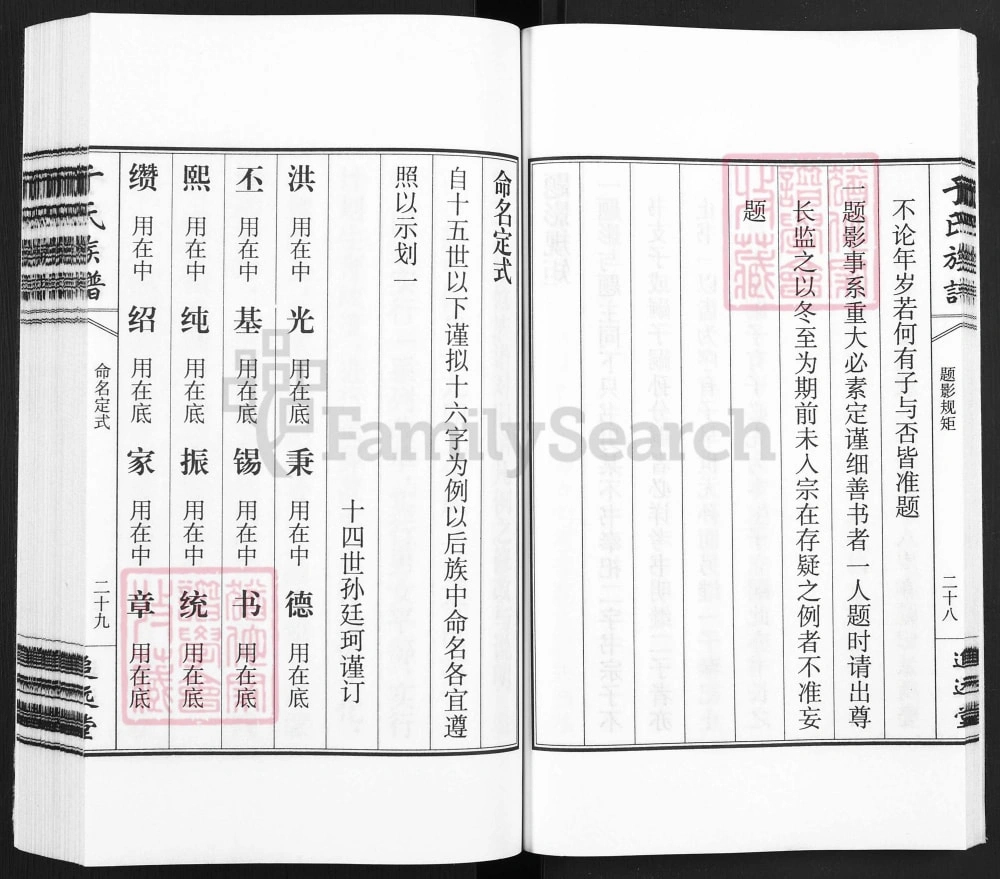 不论年岁若何有子与否皆准题
一题影事系重大必素定谨细善书者一人题时请出尊
长监之以冬至为期前未入宗在存疑之例者不准妄
题
题影规矩
二十八
追远堂
命名定式
自十五世以下谨拟十六字为例以后族中命名各宜遵
照以示划一
十四世孙廷珂谨订
洪 用在中 光 用在底 秉 用在中 德 用在底
丕 用在中 基 用在底 锡 用在中 书 用在底
熙 用在中 纯 用在底 振 用在中 统 用在底
缵 用在中 绍 用在底 家 用在中 章 用在底
氏族谱
命名定式
二十九
追远堂
FamilySearch